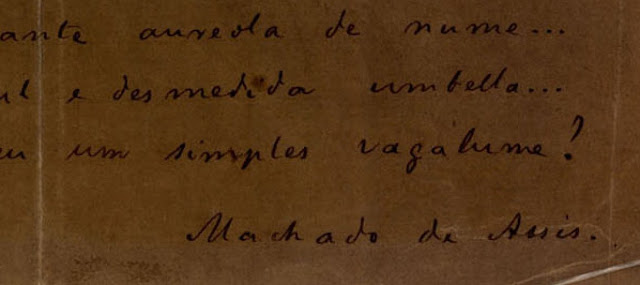 ante aureola de nume...
ul e desmedida umbella...
eu um simples vagálume?
Machado de Assis.